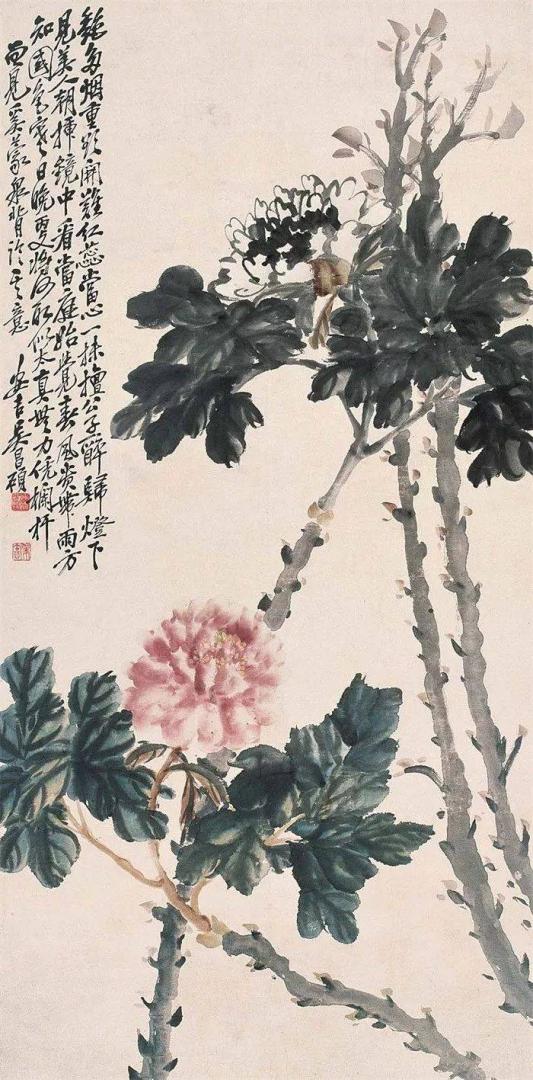 艷多烟重欲開難紅蕊當心一抹檀公子醉歸燈下
見美人朝插鏡中看當庭始覺春風貴帶雨方
知國色寒日晚更將何所似太真無力凭欄杆
見奚蒙泉背意
安吉吳昌碩